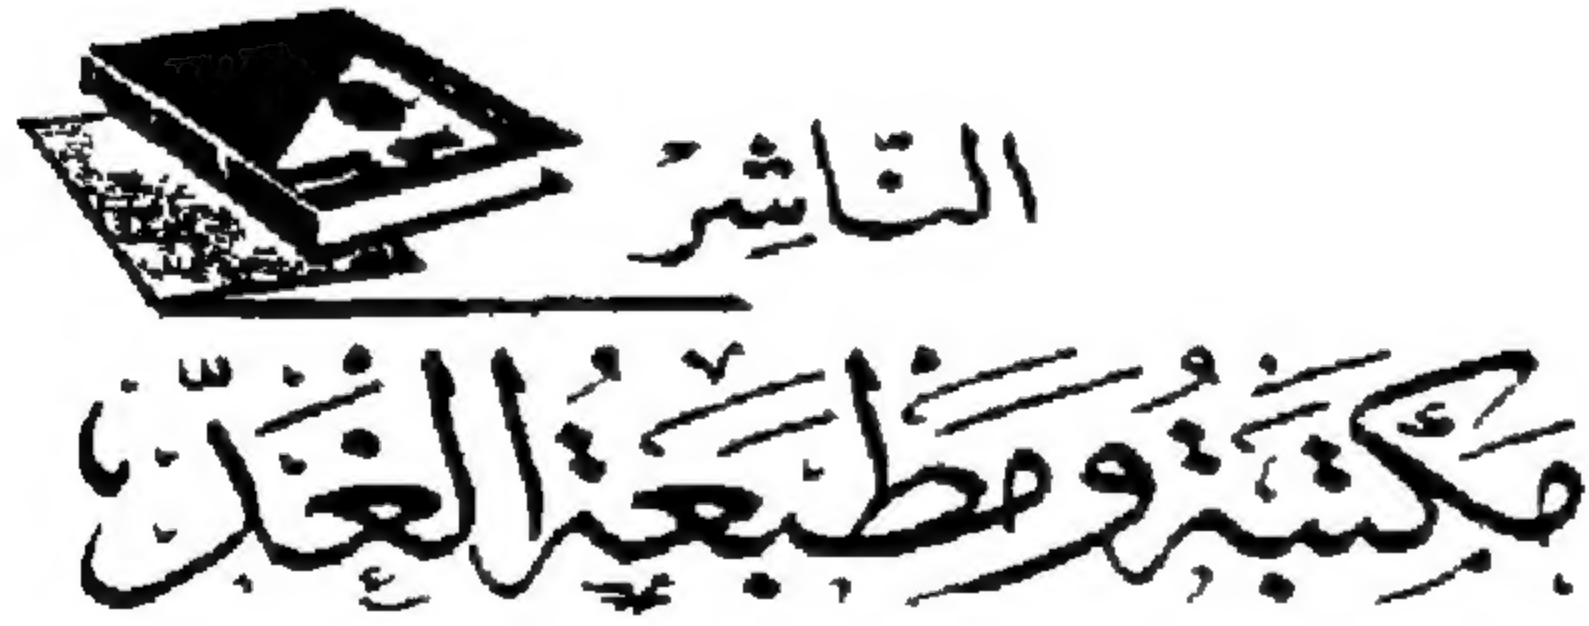 النَّاشِرْ
مَكتَبَةُ وَمَطْبَعَةُ الغَد